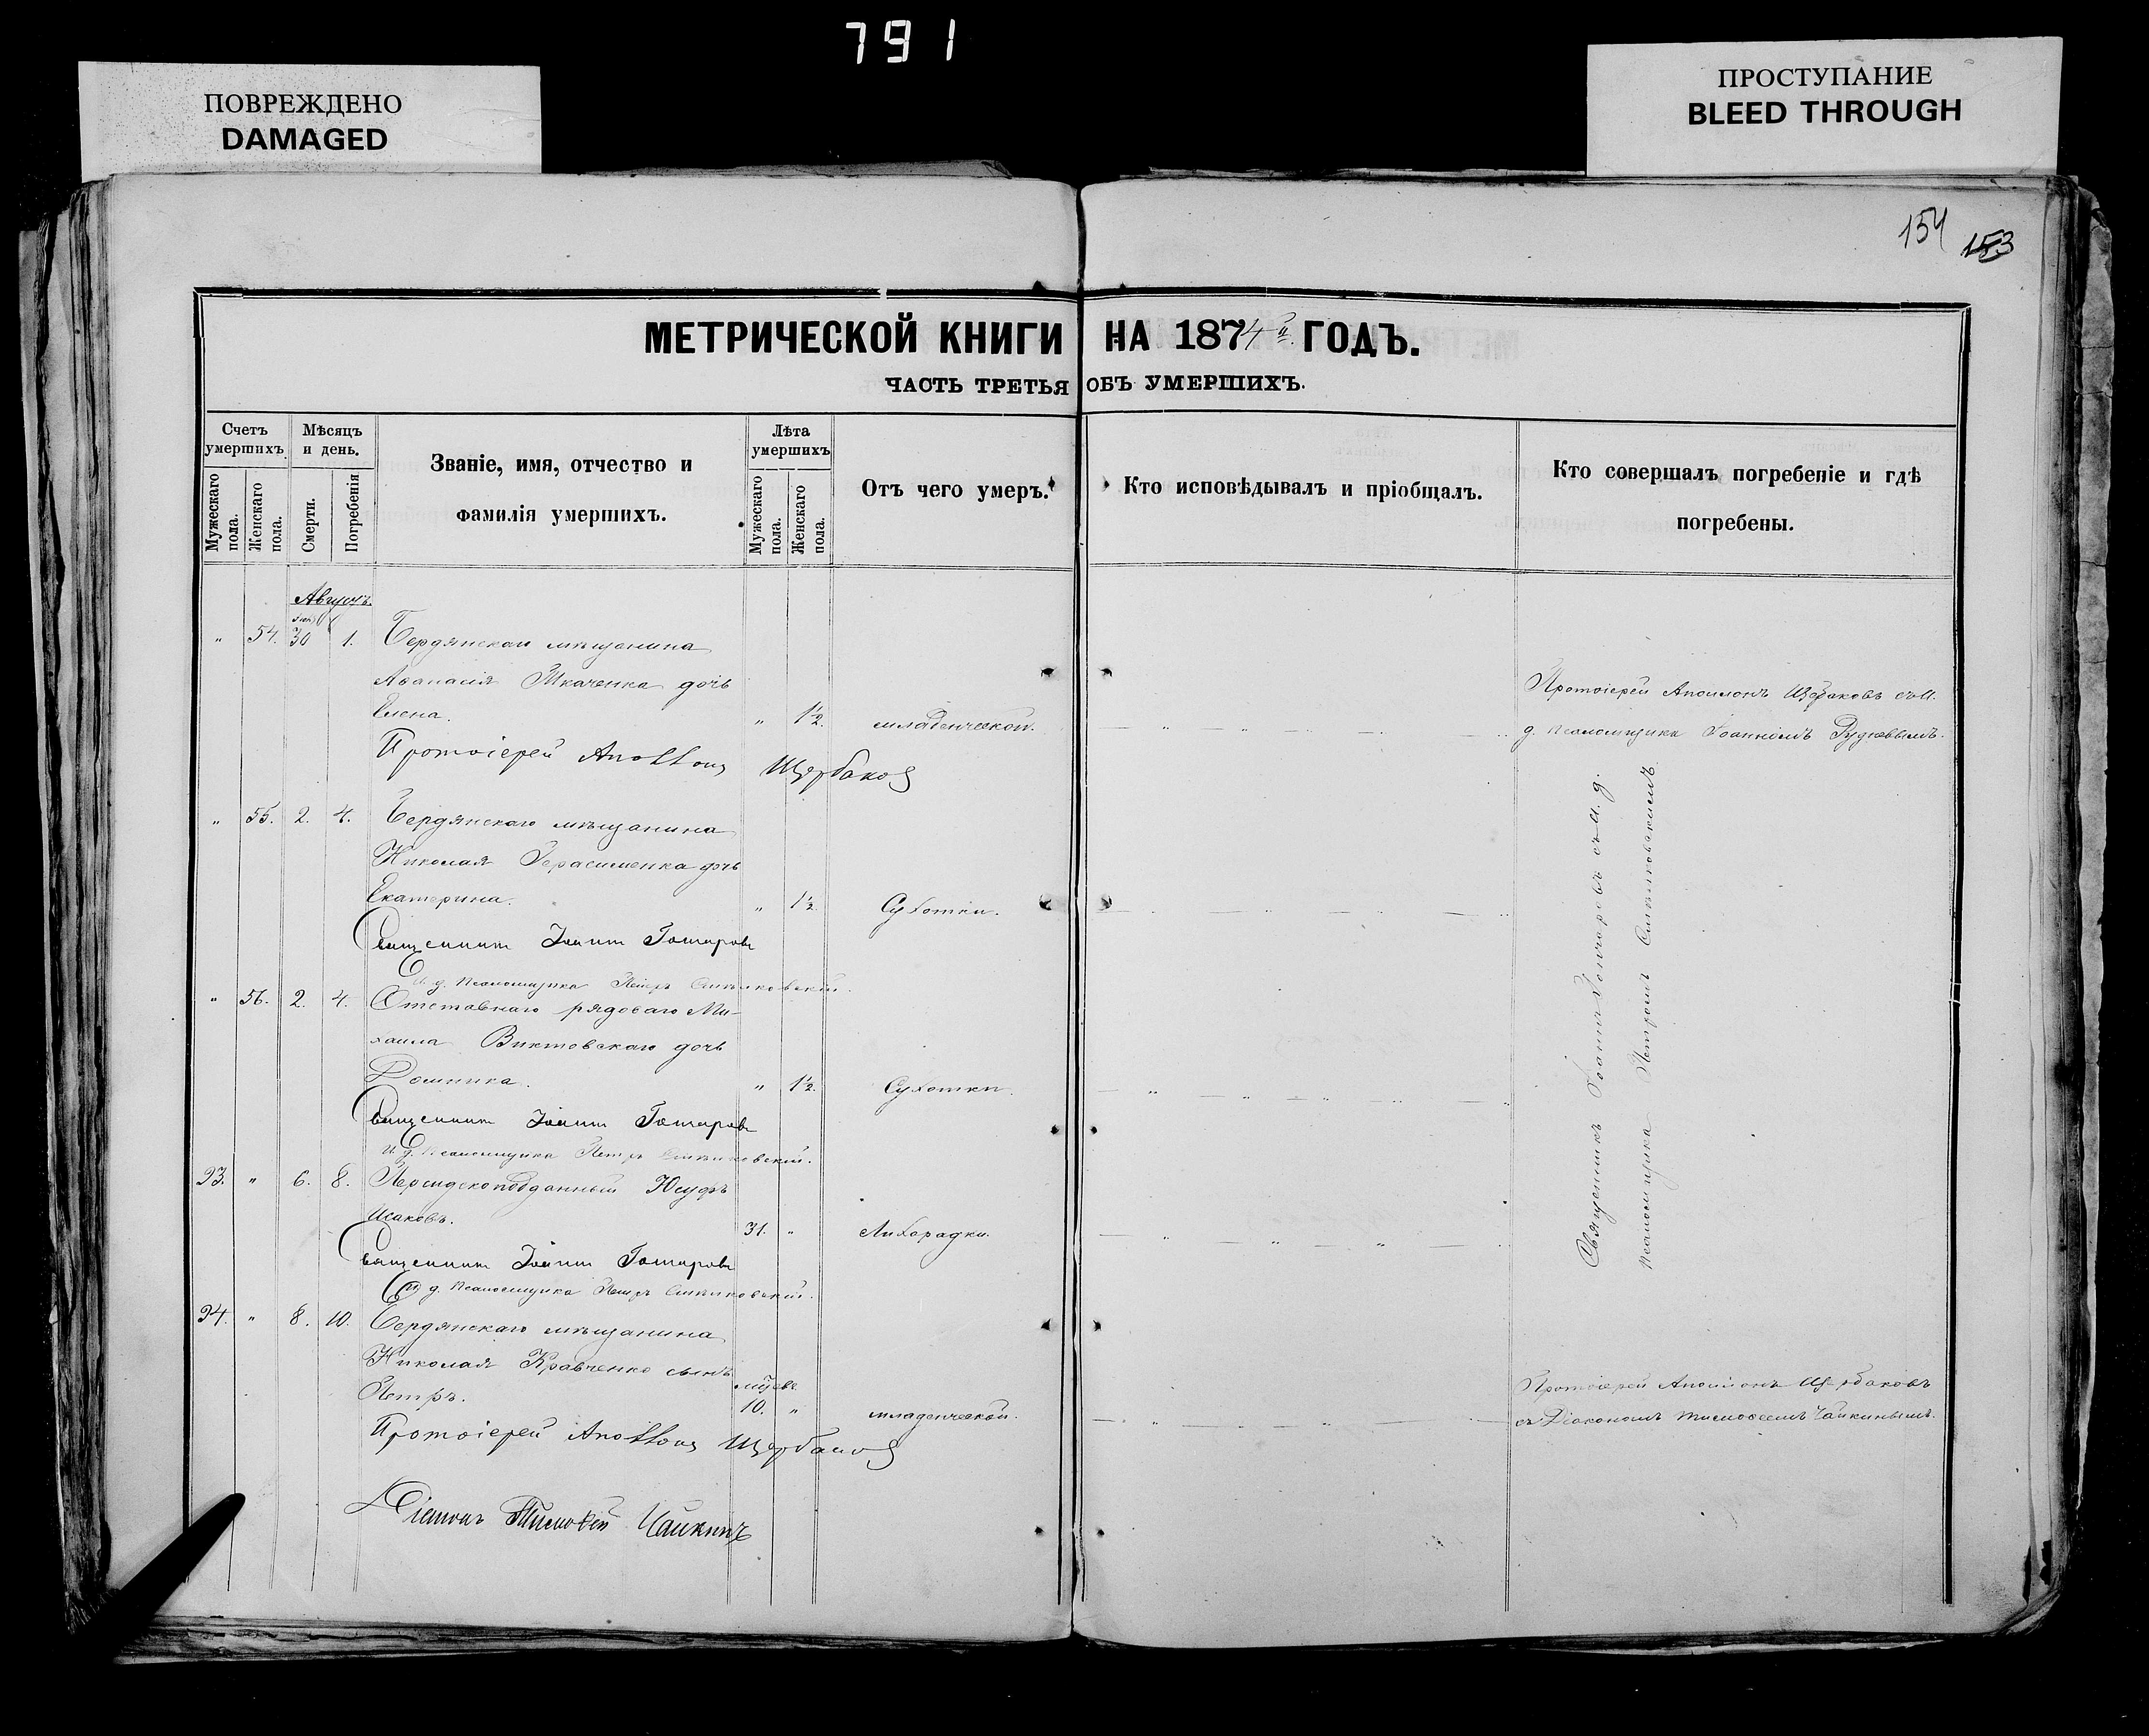 791
ПОВРЕЖДЕНО
DAMAGED
ПРОСТУПАНИЕ
BLEED THROUGH
154 153
МЕТРИЧЕСКОЙ КНИГИ НА 1874й ГОДЪ.
ЧАСТЬ ТРЕТЬЯ ОБЪ УМЕРШИХЪ.
Счетъ умершихъ.
Мужескаго пола.
Женскаго пола.
Мѣсяцъ и день.
Смерти.
Погребенія
Званіе, имя, отчество и
фамилія умершихъ.
Лѣта умершихъ
Мужескаго пола.
Женскаго пола.
Отъ чего умеръ.
Кто исповѣдывалъ и пріобщалъ.
Кто совершалъ погребеніе и гдѣ
погребены.
Августъ.
" 54. 30 1. Бердянскаго мѣщанина
Аѳанасія Ткаченка дочь
Елена. " 1½. младенческой.
Протоіерей Аполлонъ Щербаковъ съ И.
д. псаломщика Іоанномъ Рудневымъ.
Протоіерей Аполлонъ Щербаковъ
" 55. 2. 4. Бердянскаго мѣщанина
Николая Герасименка дочь
Екатерина. " 1½ Сухотки.
Священникъ Іоаннъ Гончаровъ
И. д. псаломщика Петръ
" 56. 2. 4. Отставнаго рядоваго Ми-
хаила Виктовскаго дочь
Домника. " 1½. Сухотки.
Священникъ Іоаннъ Гончаровъ
И. д. псаломщика Петръ
93. " 6. 8. Персидскоподданный Юсуфъ
Исаковъ. 31. " Лихорадки.
Священникъ Іоаннъ Гончаровъ
И. д. псаломщика Петръ
Священникъ Іоаннъ Гончаровъ съ И. д.
псаломщика Петромъ
94. " 8. 10. Бердянскаго мѣщанина
Николая Кравченко сынъ
Петръ. мѣсяц. 10. " младенческой.
Протоіерей Аполлонъ Щербаковъ
съ Діакономъ Тимоѳеемъ Чайкинымъ.
Протоіерей Аполлонъ Щербаковъ
Діаконъ Тимоѳей Чайкинъ